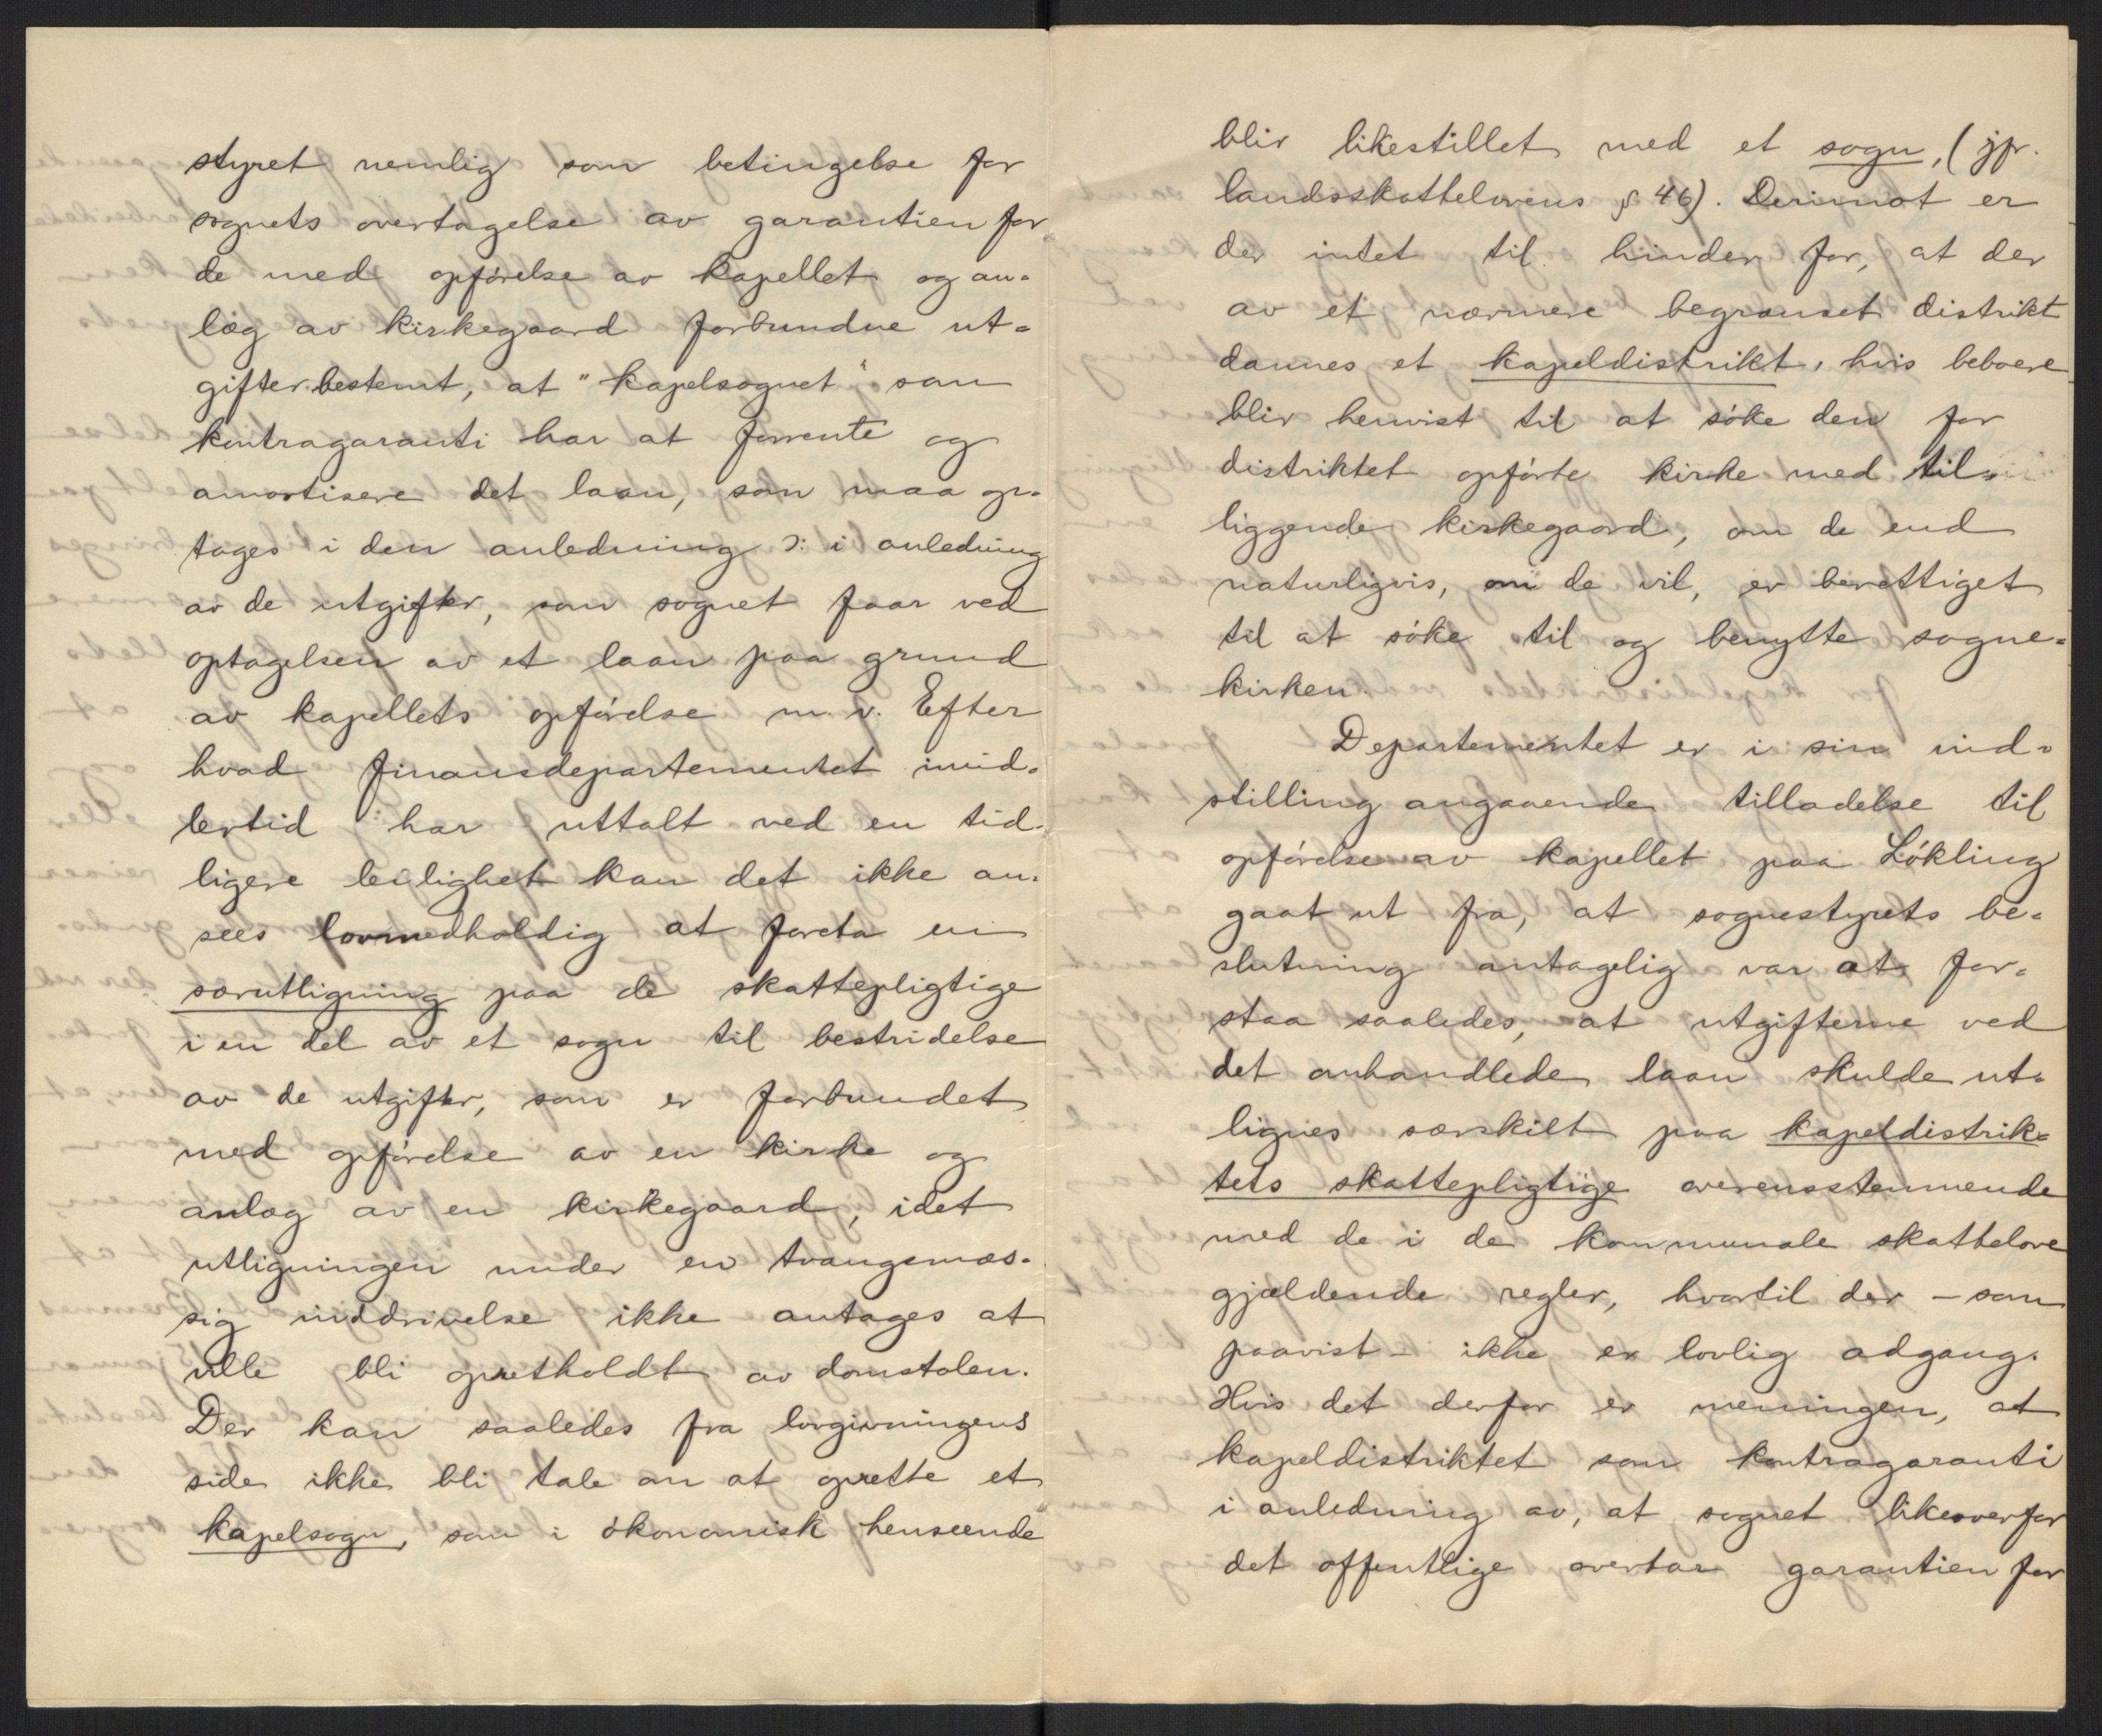 styret nemlig som betingelse for
sognets overtagelse av garantien for
de med opførelse av kapellet og an=
læg av kirkegaard forbundne ut=
gifter bestemt, at "kapelsognet" som
kontragaranti har at forrente og
amortisere det laan, som maa op=
tages i den anledning ɔ: i anledning
av de utgifter, som sognet faar ved
optagelsen av et laan paa grund
av kapellets opførelse m. v. Efter
hvad finansdepartementet imid=
lertid har uttalt ved en tid=
ligere leilighet kan det ikke an=
sees lovmedholdig at foreta en
særutligning paa de skattepligtige
i en del av et sogn til bestridelse
av de utgifter, som er forbundet
med opførelse av en kirke og
anlæg av en kirkegaard, idet
utligningen under en tvangsmæs=
sig inddrivelse ikke antages at
ville bli opretholdt av domstolen.
Der kan saaledes fra lovgivningens
side ikke bli tale om at oprette et
kapelsogn, som i økonomisk henseende
blir likestillet med et sogn, (jfr.
landsskattelovens § 46). Derimot er
der intet til hinder for, at der
av et nærmere begrænset distrikt
dannes et kapeldistrikt, hvis beboere
blir henvist til at søke den for
distriktet opførte kirke med til=
liggende kirkegaard, om de end
naturligvis, om de vil, er berettiget
til at søke til og benytte sogne=
kirken.
Departementet er i sin ind=
stilling angaaende tilladelse til
opførelse av kapellet paa Løkling
gaat ut fra, at sognestyrets be=
slutning antagelig var at for=
staa saaledes, at utgifterne ved
det omhandlede laan skulde ut=
lignes særskilt paa kapeldistrik=
tets skattepligtige overensstemmende
med de i de kommunale skattelove
gjældende regler, hvortil der – som
paavist – ikke er lovlig adgang.
Hvis det derfor er meningen, at
kapeldistriktet som kontragaranti
i anledning av, at sognet likeoverfor
det offentlige overtar garantien for